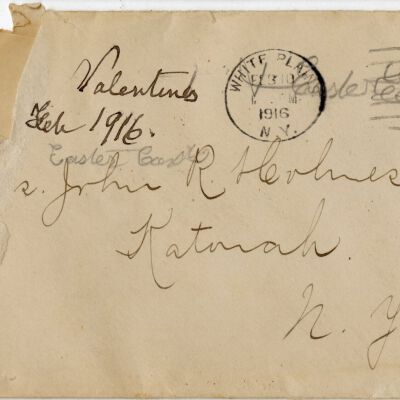 Valentines
Feb 1916.
WHITE PLAINS
FEB 10
M
1916
N.Y.
Easter
Easter Cards
s. John R Holmes
Katonah.
N. Y